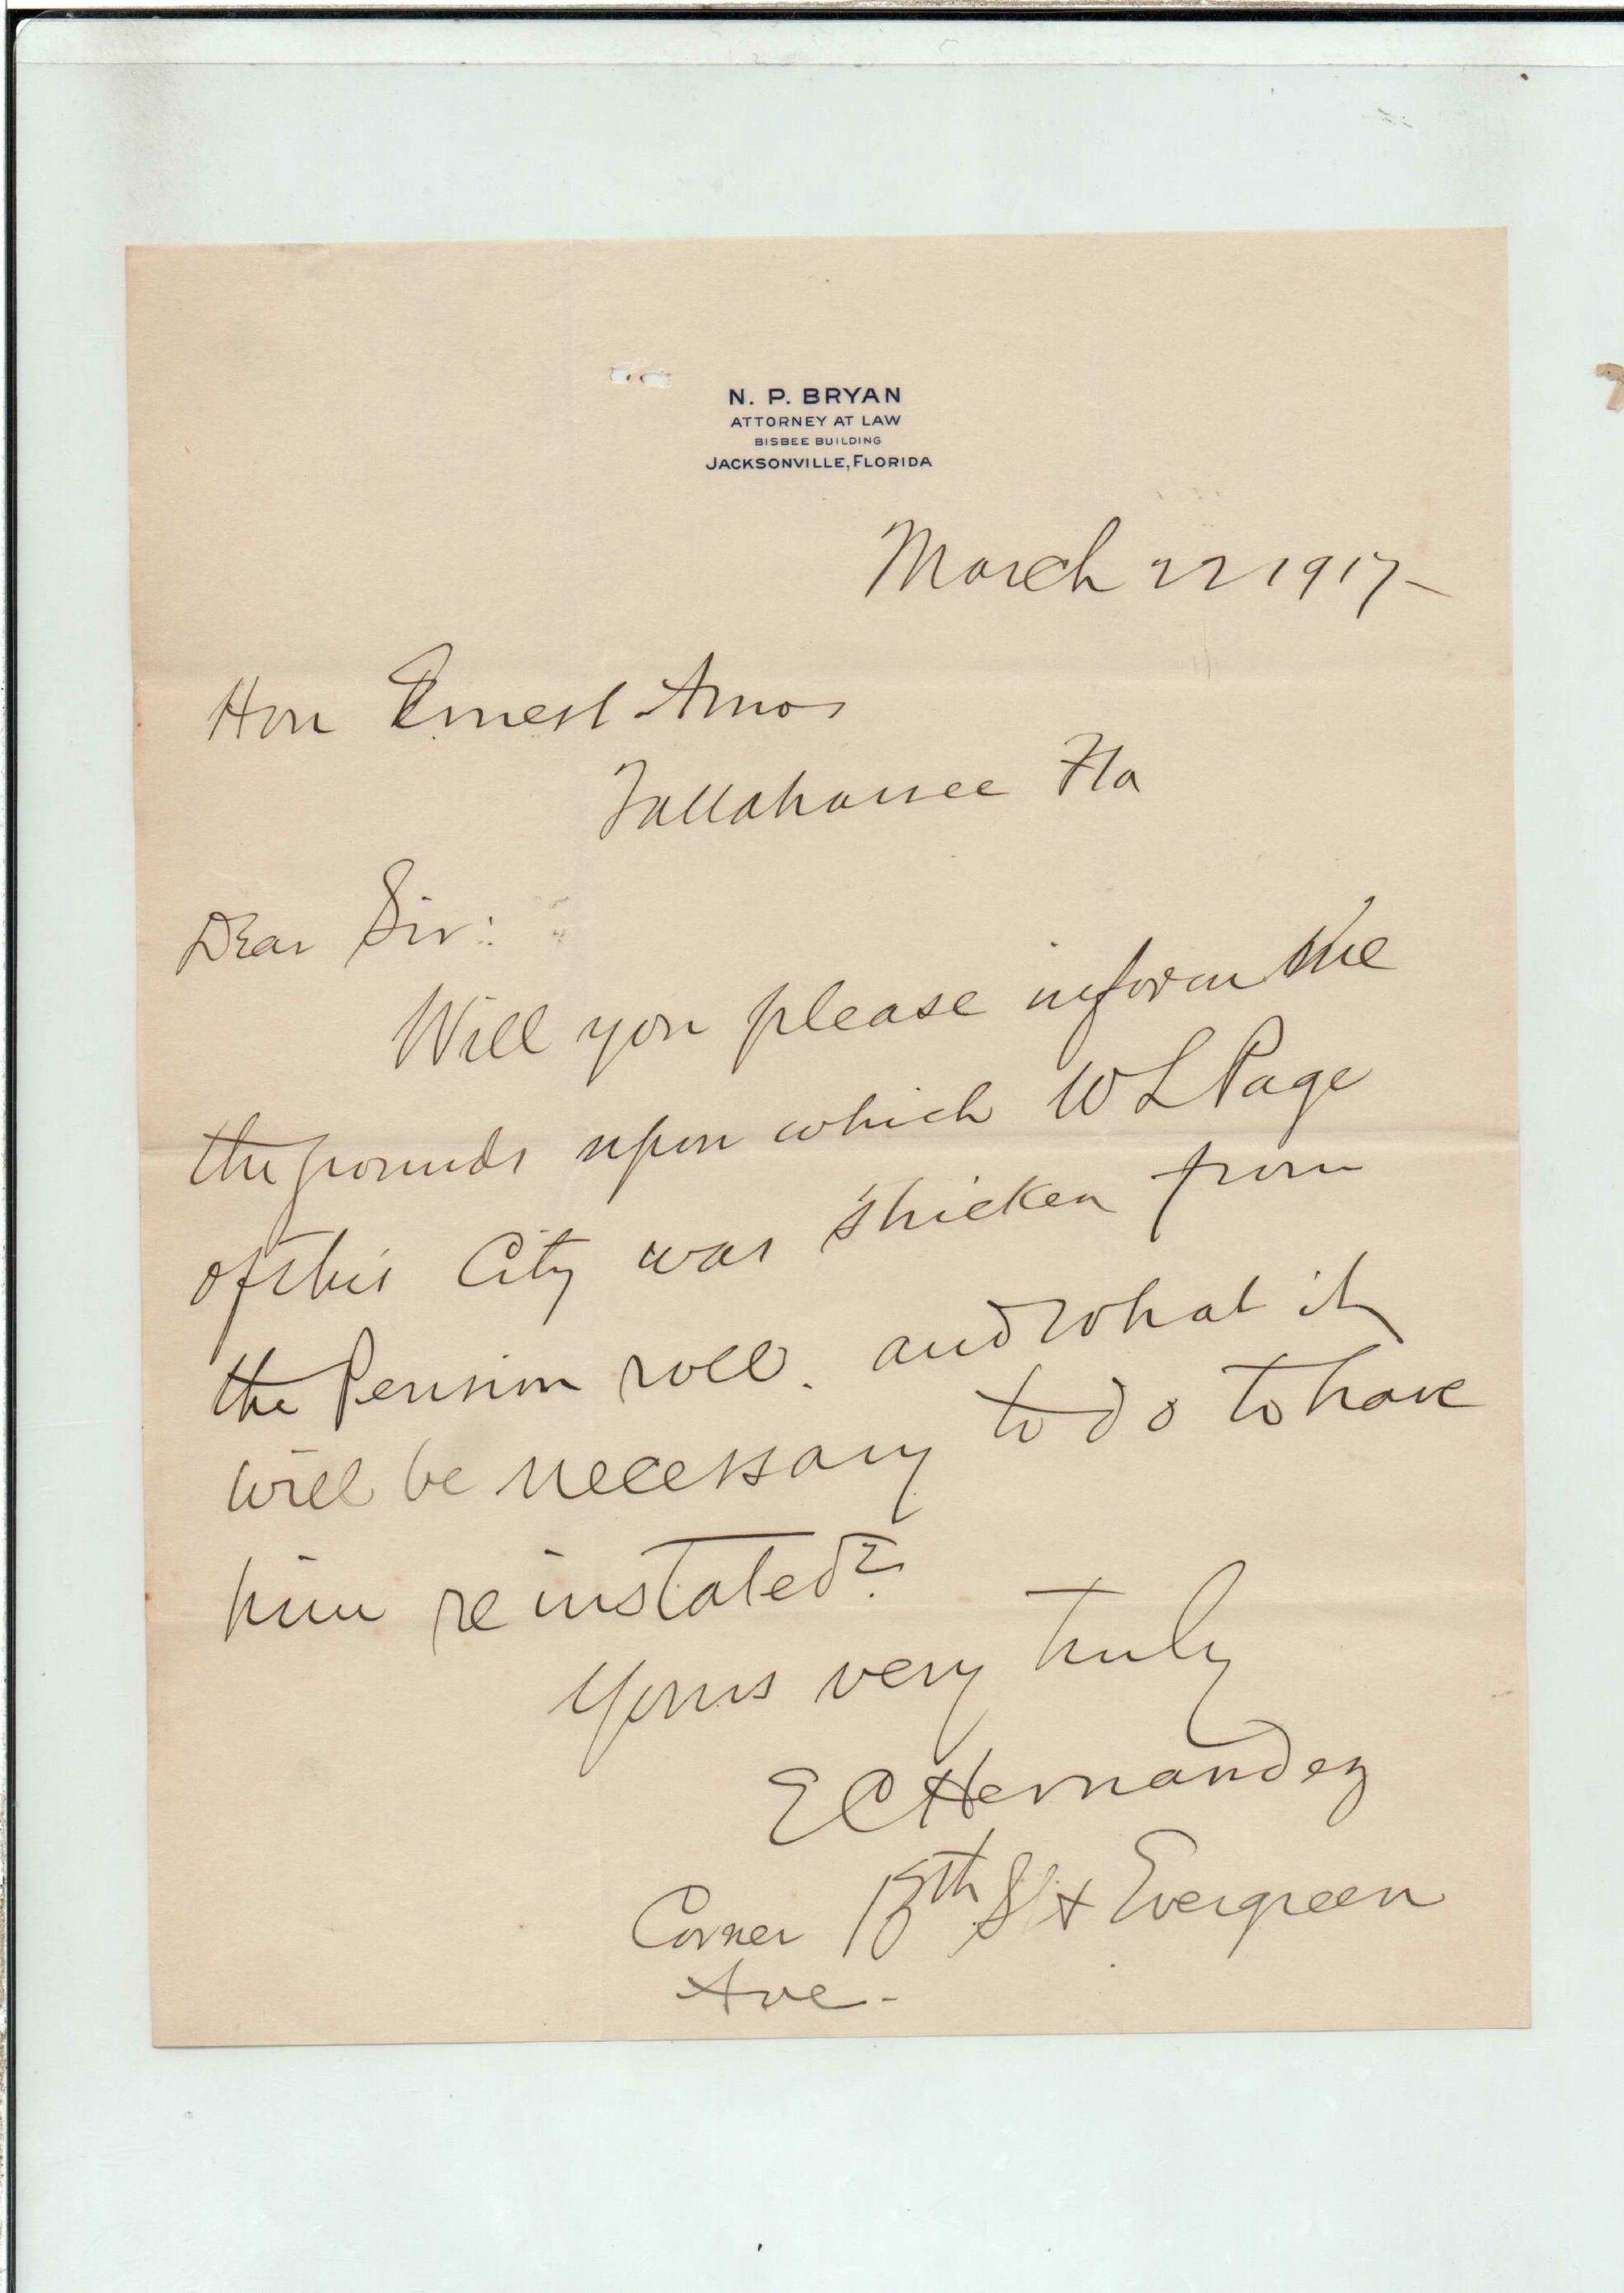 N. P. BRYAN
ATTORNEY AT LAW
BISBEE BUILDING
JACKSONVILLE, FLORIDA
March 22 1917-
Hon Ernest Amos
Tallahassee Fla
Dear Sir:
Will you please inform me
the grounds upon which W L Page
of this City was stricken from
the Pension roll. and what it
will be necessary to do to have
him reinstated?
Yours very truly
E C Hernandez
Corner St & Evergreen
Ave-